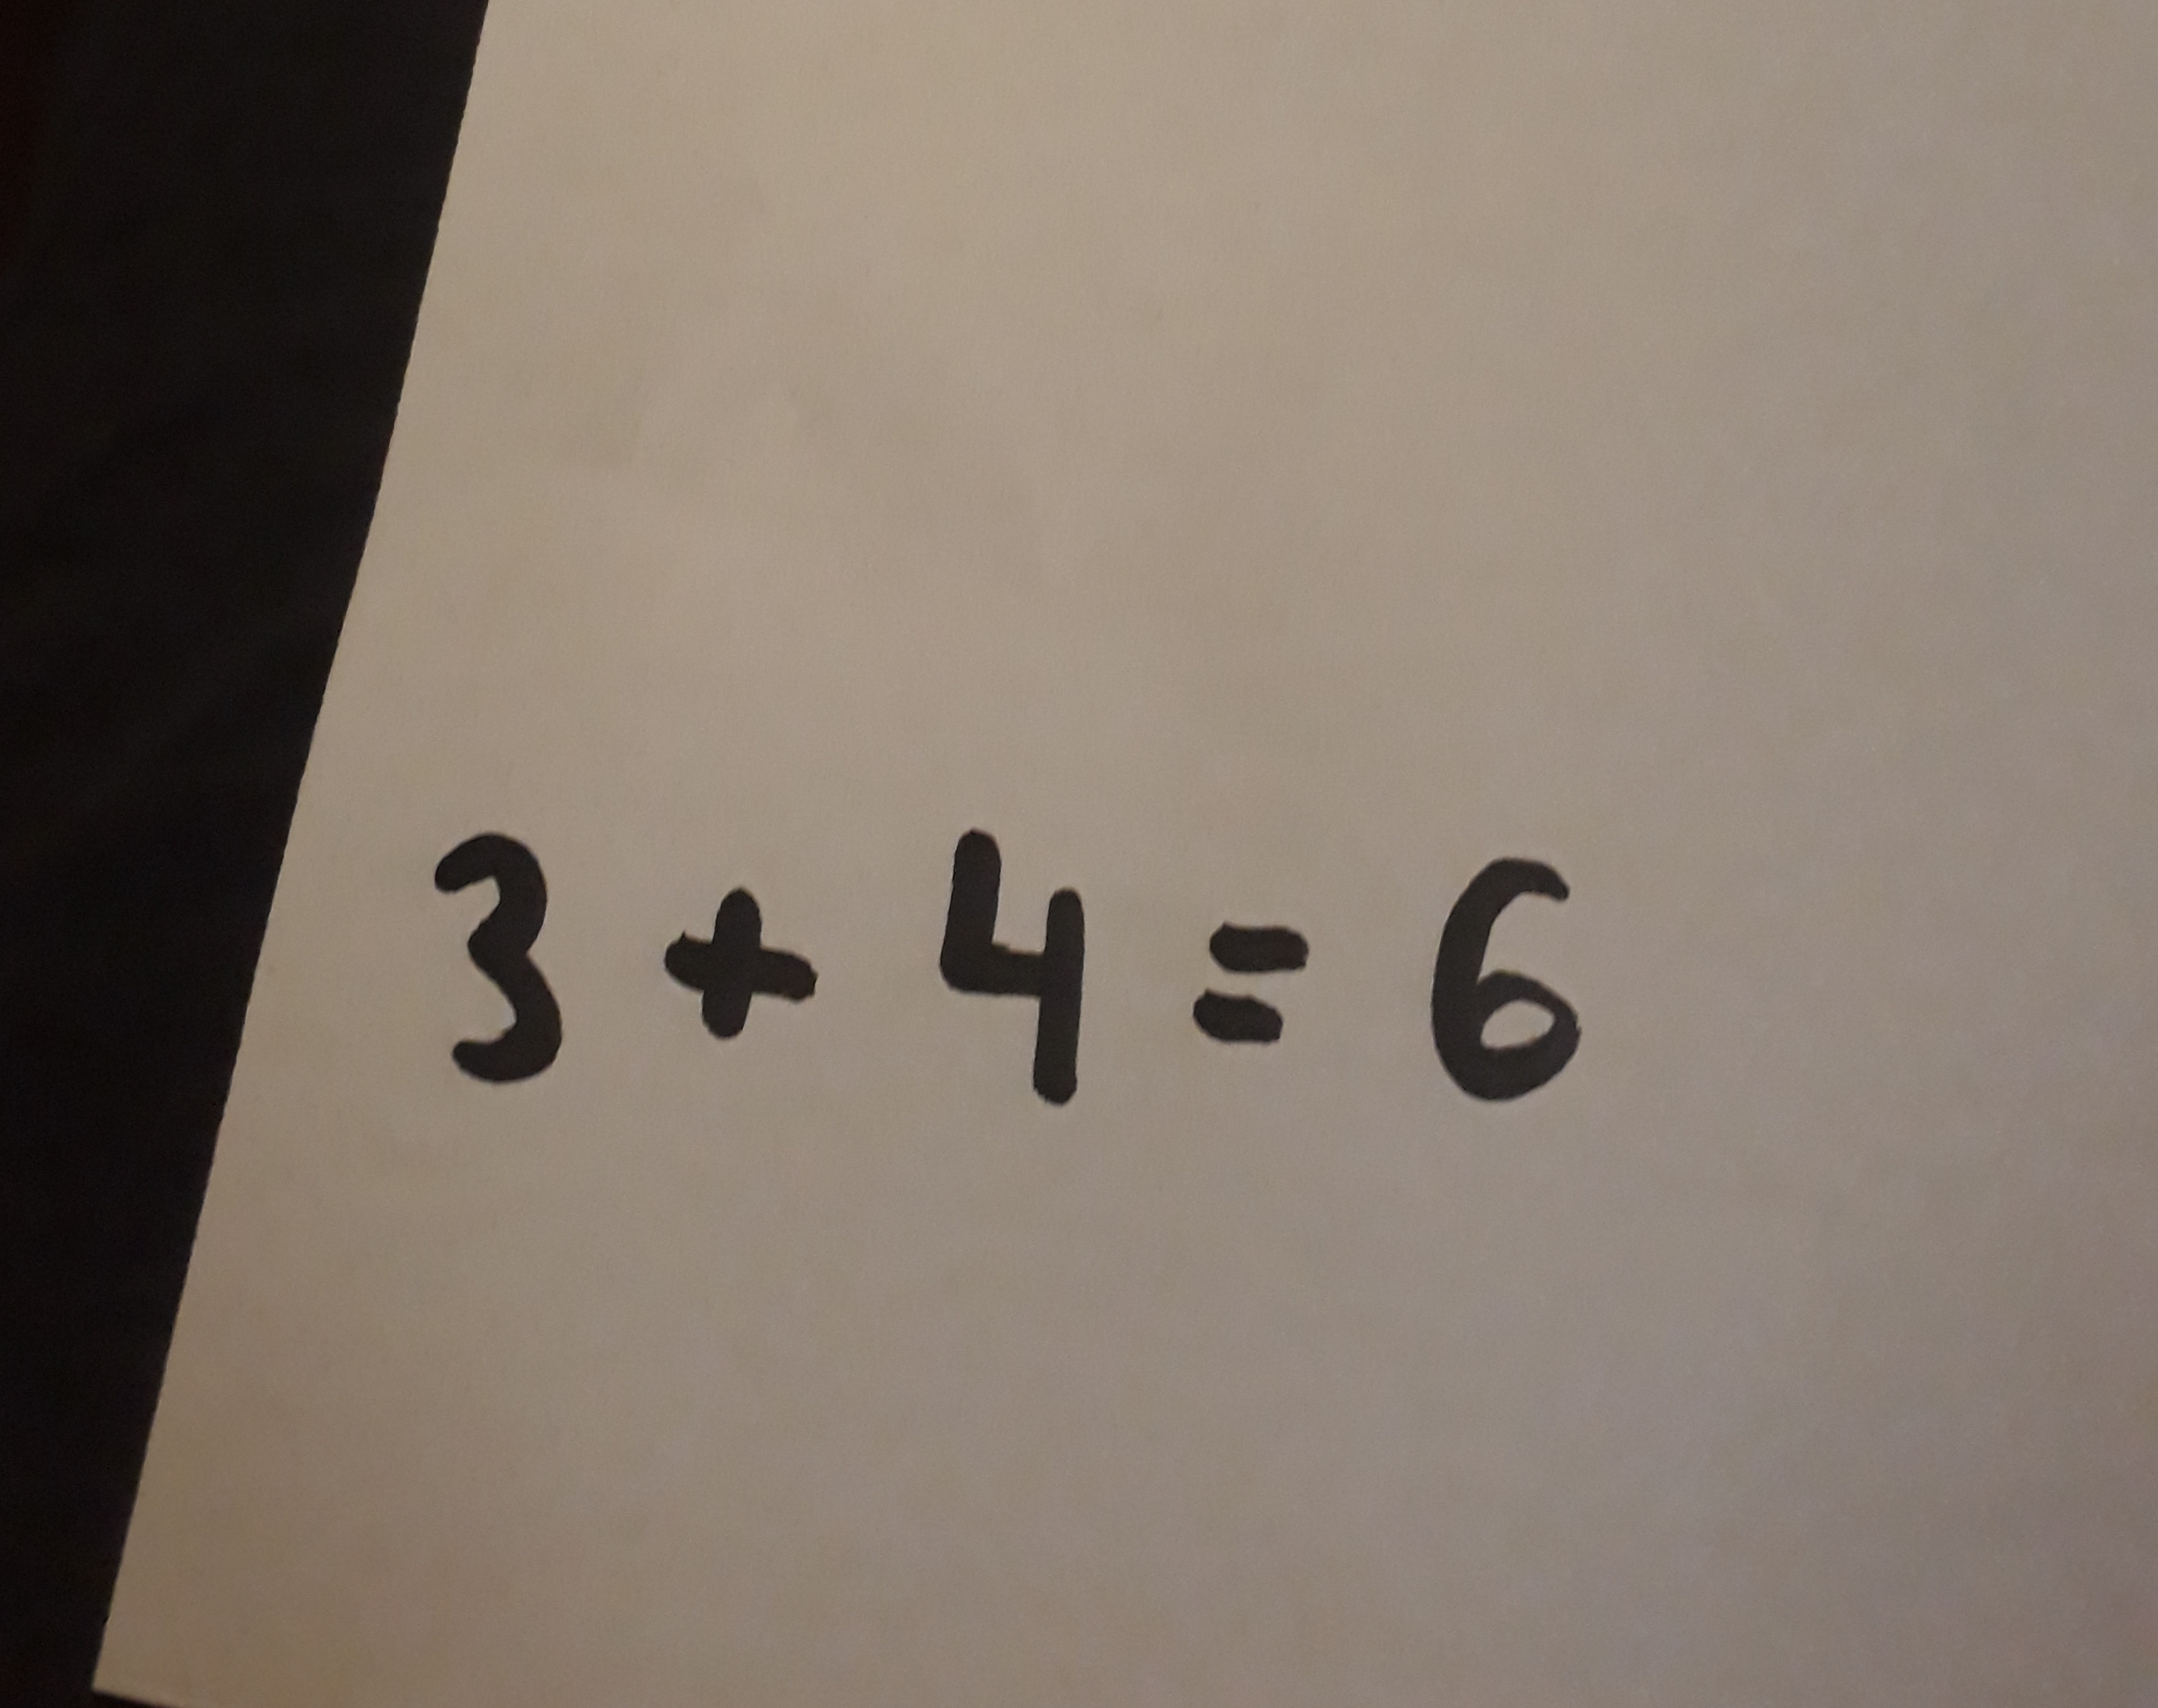 3 + 4 = 6